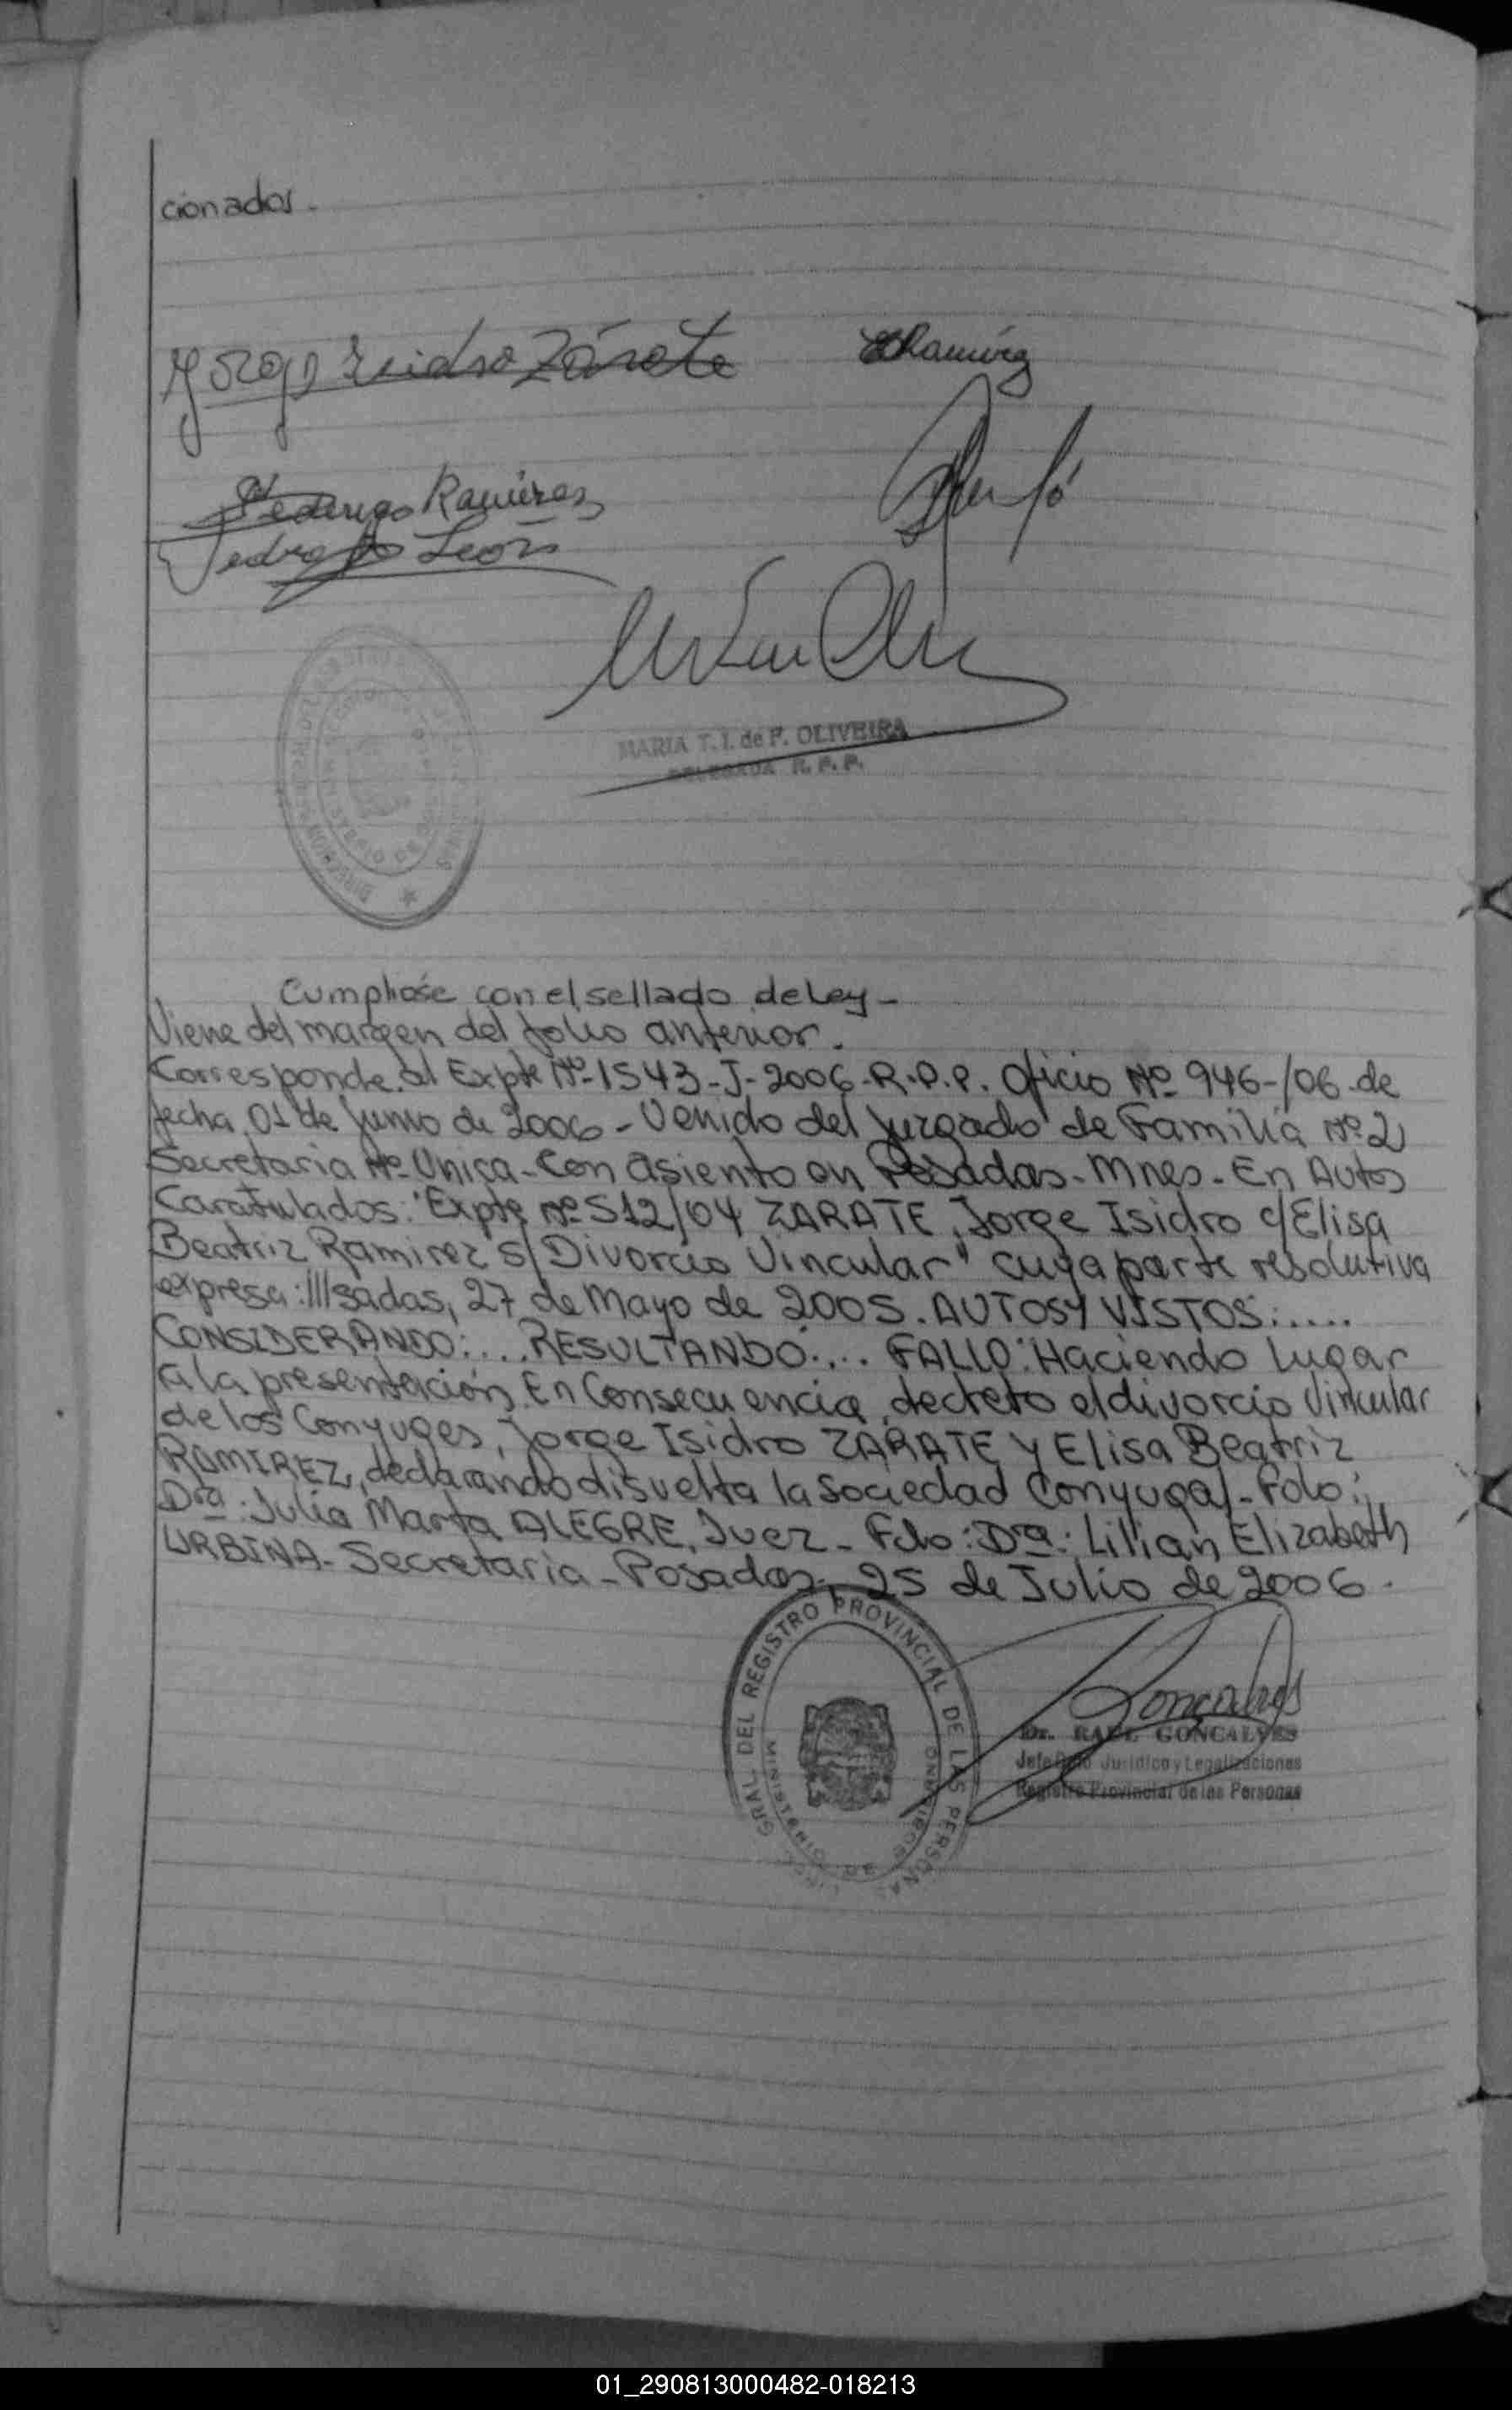 cionados.
Jorge Isidro Zárate
ERamírez
Federigo Ramírez
Pedro León
MARIA T. I. de F. OLIVEIRA
DELEGADA R. P. P.
Cumplióse con el sellado de Ley-
Viene del margen del folio anterior.
Corresponde al Expte Nº-1543-J-2006-R.P.P. Oficio Nº 946-/06-de
fecha 01 de Junio de 2006-Venido del Juzgado de Familia Nº2
Secretaria Nº Unica-Con asiento en Posadas-Mnes-En Autos
Caratulados: "Expte Nº512/04 ZARATE, Jorge Isidro c/Elisa
Beatriz Ramirez S/Divorcio Vincular" cuya parte resolutiva
expresa:///sadas, 27 de Mayo de 2005. AUTOS Y VISTOS:.....
CONSIDERANDO:....RESULTANDO:... FALLO: Haciendo lugar
a la presentación. En Consecuencia, decreto el divorcio Vincular
de los Conyuges, Jorge Isidro ZARATE y Elisa Beatriz
RAMIREZ, declarando disuelta la Sociedad Conyugal-Fdo:
Dra: Julia Marta ALEGRE, Juez-Fdo: Dra: Lilian Elizabeth
URBINA-Secretaria-Posadas, 25 de Julio de 2006.
GRAL. DEL REGISTRO PROVINCIAL DE LAS PERSONAS
MINISTERIO DE GOBIERNO
Goncalves
Dr. RAUL GONCALVES
Jefe Dpto Jurídico y Legalizaciones
Registro Provincial de las Personas
01_290813000482-018213